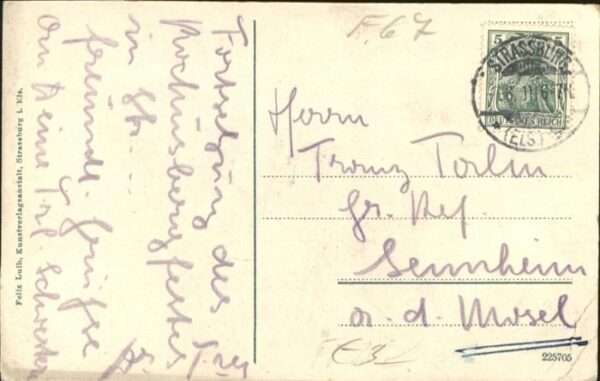 Fortsetzung des
Rochusbergfestes
in Str. ....
freundl. Grüße
an Deine Frl. Schwester
Felix Luib, Kunstverlagsanstalt, Strassburg i. Els.
F. 67
5 5
STRASSBURG
DEUTSCHES REICH
(ELS.)
Herrn
Franz
Gr. Ref.
Sennheim
a. d. Mosel
225705